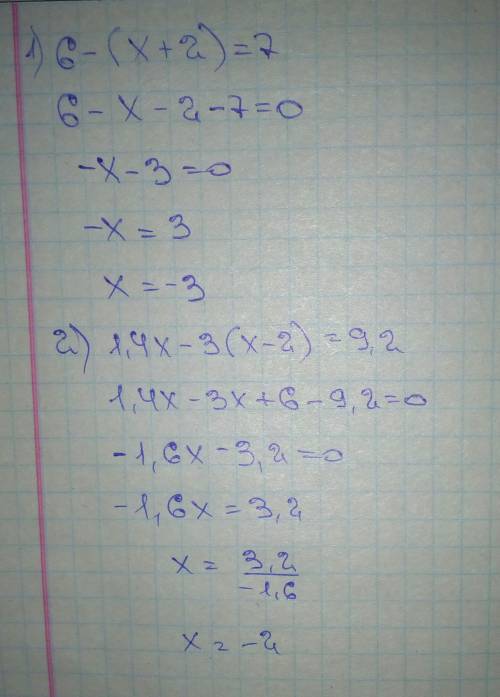 1) 6-(x+2)=7
6-x-2-7=0
-x-3=0
-x=3
x=-3
2) 1,4x-3(x-2)=9,2
1,4x-3x+6-9,2=0
-1,6x-3,2=0
-1,6x=3,2
x= 3,2
-1,6
x=-2